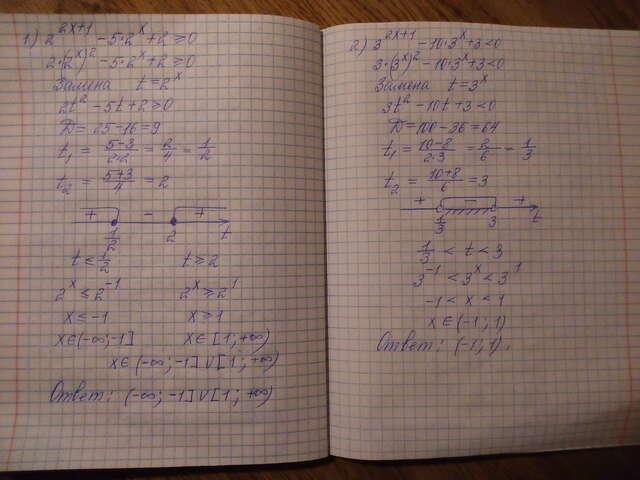 1.) 2^{2x+1} - 5·2^x + 2 ≥ 0
2·(2^x)^2 - 5·2^x + 2 ≥ 0
Замена t = 2^x
2t^2 - 5t + 2 ≥ 0
D = 25 - 16 = 9
t_1 = \frac{5-3}{2·2} = \frac{2}{4} = \frac{1}{2}
t_2 = \frac{5+3}{4} = 2
+ - +
\frac{1}{2} 2 t
t ≤ \frac{1}{2} t ≥ 2
2^x ≤ 2^{-1} 2^x ≥ 2^1
x ≤ -1 x ≥ 1
x ∈ (-∞; -1] x ∈ [1; +∞)
x ∈ (-∞; -1] ∪ [1; +∞)
Ответ: (-∞; -1] ∪ [1; +∞)
2.) 3^{2x+1} - 10·3^x + 3 < 0
3·(3^x)^2 - 10·3^x + 3 < 0
Замена t = 3^x
3t^2 - 10t + 3 < 0
D = 100 - 36 = 64
t_1 = \frac{10-8}{2·3} = \frac{2}{6} = \frac{1}{3}
t_2 = \frac{10+8}{6} = 3
+ - +
\frac{1}{3} 3 t
\frac{1}{3} < t < 3
3^{-1} < 3^x < 3^1
-1 < x < 1
x ∈ (-1; 1)
Ответ: (-1; 1).